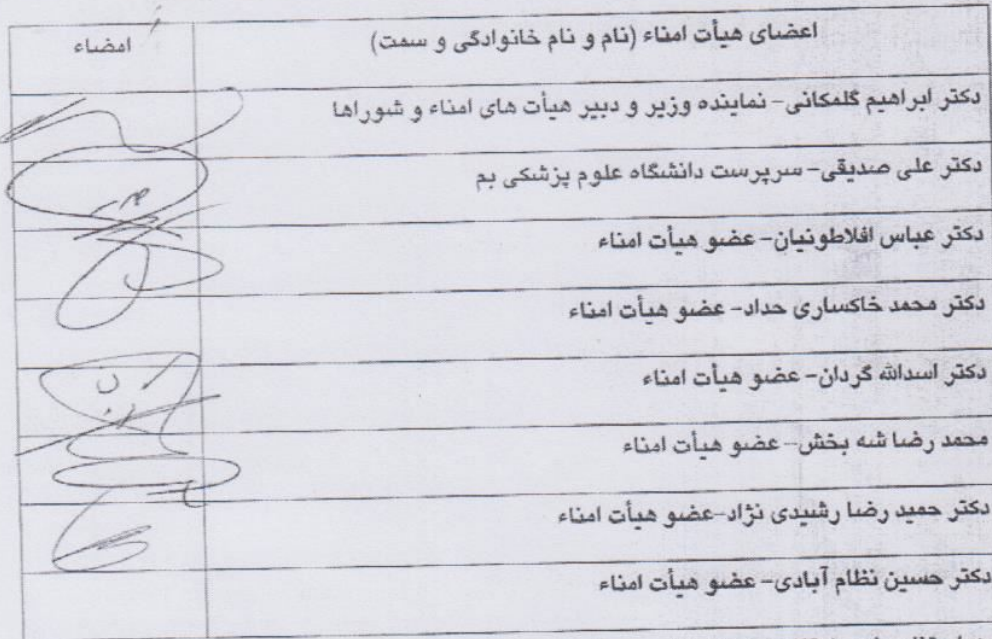 اعضای هیأت امناء (نام و نام خانوادگی و سمت) امضاء
دکتر ابراهیم گلمکانی- نماینده وزیر و دبیر هیأت های امناء و شوراها
دکتر علی صدیقی- سرپرست دانشگاه علوم پزشکی بم
دکتر عباس افلاطونیان- عضو هیأت امناء
دکتر محمد خاکساری حداد- عضو هیأت امناء
دکتر اسدالله گردان- عضو هیأت امناء
محمد رضا شه بخش- عضو هیأت امناء
دکتر حمید رضا رشیدی نژاد-عضو هیأت امناء
دکتر حسین نظام آبادی- عضو هیأت امناء